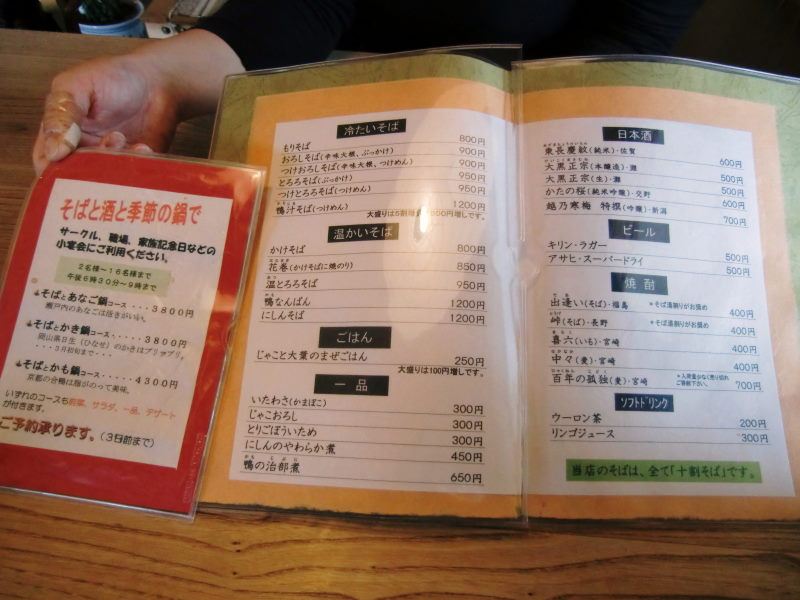 そばと酒と季節の鍋で
サークル、職場、家族記念日などの
小宴会にご利用ください。
2名様〜16名様まで
午後6時30分〜9時まで
そばとあなご鍋コース・・・3800円
瀬戸内のあなごは活きがいい。
そばとかき鍋コース・・・・・3800円
岡山県日生(ひなせ)のかきはプリップリ。
・・・3月初旬まで・・・・
そばとかも鍋コース・・・・4300円
京都の合鴨は脂がのって美味。
いずれのコースも前菜、サラダ、一品、デザート
が付きます。
ご予約承ります。(3日前まで)
冷たいそば
もりそば 800円
おろしそば(辛味大根、ぶっかけ) 900円
つけおろしそば(辛味大根、つけめん) 900円
とろろそば(ぶっかけ) 950円
つけとろろそば(つけめん) 950円
鴨汁そば(つけめん) 1200円
大盛りは5割増量
円増しです。
温かいそば
かけそば 800円
花巻(かけそばに焼のり) 850円
温とろろそば 950円
鴨なんばん 1200円
にしんそば 1200円
ごはん
じゃこと大葉のまぜごはん 250円
大盛りは100円増しです。
一品
いたわさ(かまぼこ) 300円
じゃこおろし 300円
とりごぼういため 300円
にしんのやわらか煮 450円
鴨の治部煮 650円
日本酒
東長慶紋(純米)・佐賀 600円
大黒正宗(本醸造)・灘 500円
大黒正宗(生)・灘 500円
かたの桜(純米吟醸)・交野 600円
越乃寒梅 特撰(吟醸)・新潟 700円
ビール
キリン・ラガー 500円
アサヒ・スーパードライ 500円
焼酎
出逢い(そば)・福島 *そば湯割りがお奨め 400円
峠(そば)・長野 *そば湯割りがお奨め 400円
喜六(いも)・宮崎 400円
中々(麦)・宮崎 400円
百年の孤独(麦)・宮崎 *入荷量少なく売り切れ
ご容赦下さい。 700円
ソフトドリンク
ウーロン茶 200円
リンゴジュース 300円
当店のそばは、全て「十割そば」です。